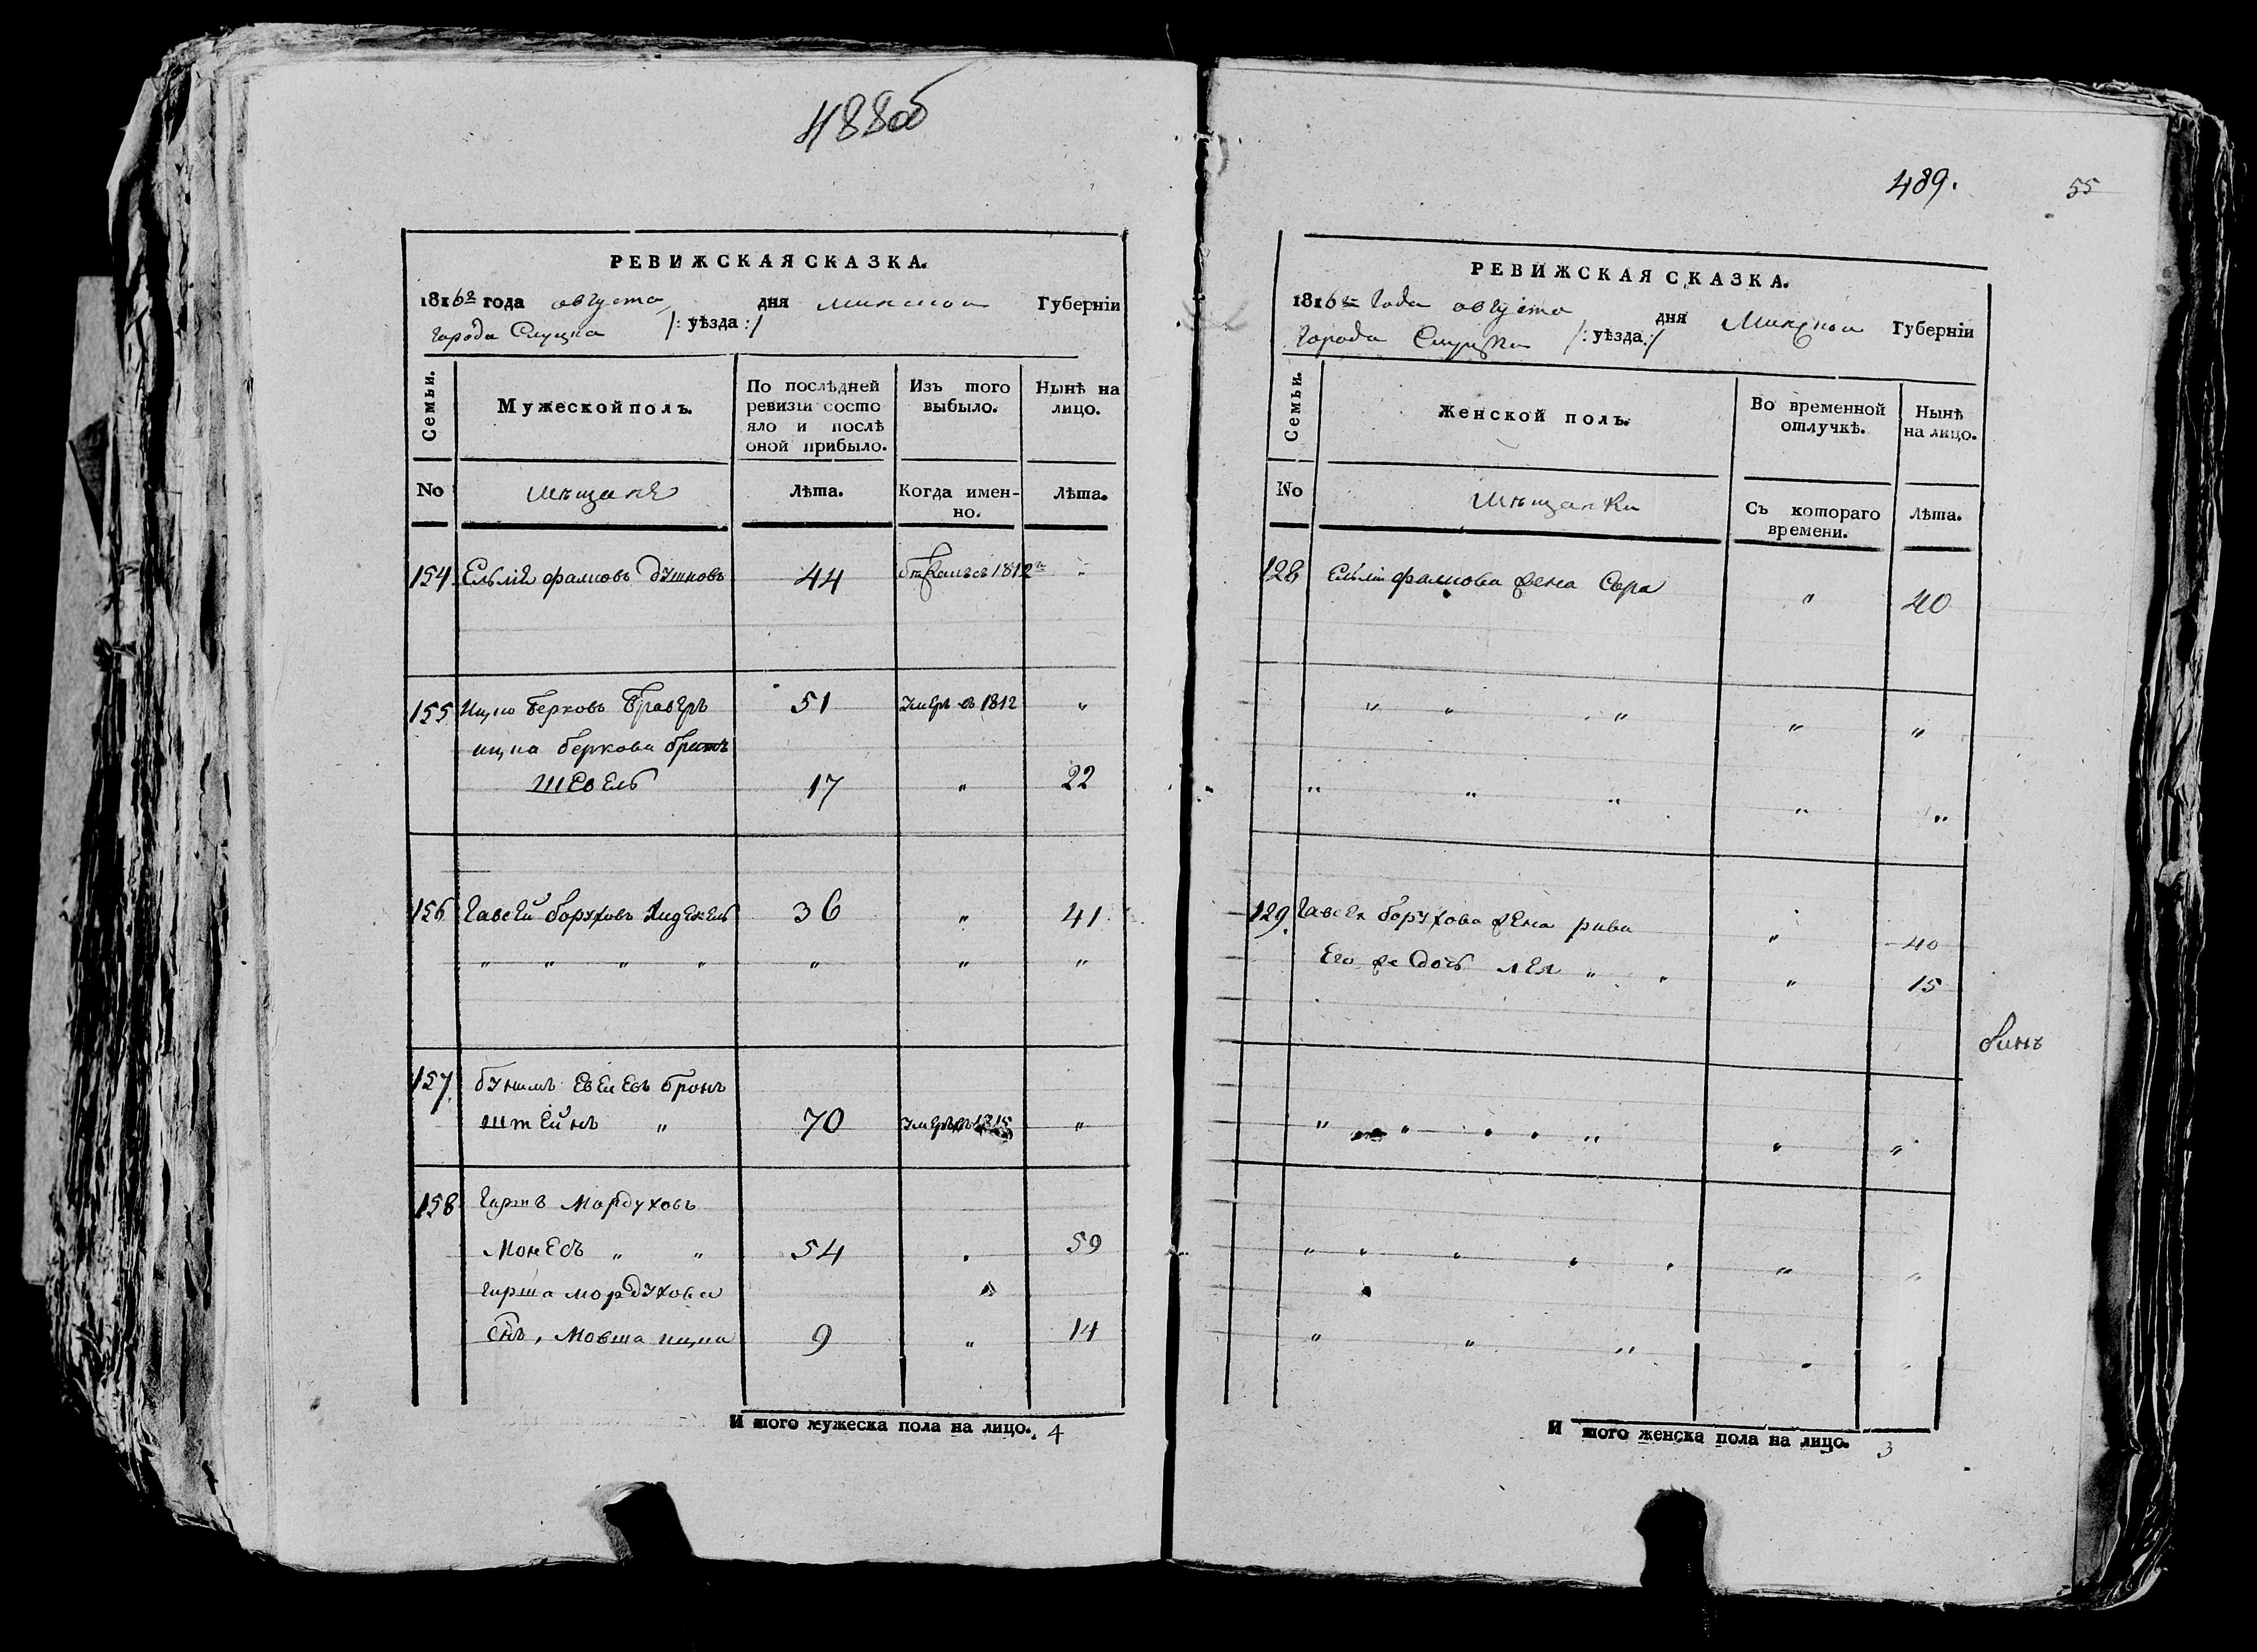 488об
РЕВИЖСКАЯ СКАЗКА.
1816го года августа дня минской Губерніи
города Слуцка /: уѣзда :/
Семьи.
Мужеской полъ.
По послѣдней ревизіи состо
яло и послѣ
оной прибыло.
Изъ того
выбыло.
Нынѣ на
лицо.
No
мѣщанѣ
Лѣта.
Когда имен-
но.
Лѣта.
154 44 1812 "
155 Ицко Берковъ 51 умеръ въ 1812 "
ицка беркова братъ
шевель 17 " 22
156 боруховъ 36 " 41
" " " " " " "
157 Бронъ
штейнъ " 70 умеръ въ 1815 "
158 Гиршъ Мордуховъ
Монесъ " " 54 " 59
гирша мордухова
снъ, Мовша ицка 9 " 14
И того мужеска пола на лицо. 4
489.
55
РЕВИЖСКАЯ СКАЗКА.
1816го года августа дня Минской Губерніи
города Слуцка /: уѣзда :/
Семьи.
Женской полъ.
Во временной
отлучкѣ.
Нынѣ
на лицо.
No
мѣщанки
Съ котораго
времени.
Лѣта.
128 жена Сора " 40
" " " " "
" " " " "
129. борухова жена рива " 40
Его же дочь лея " " " 15
" " " " " " "
" " " " " " "
" " " " "
И того женска пола на лицо. 3